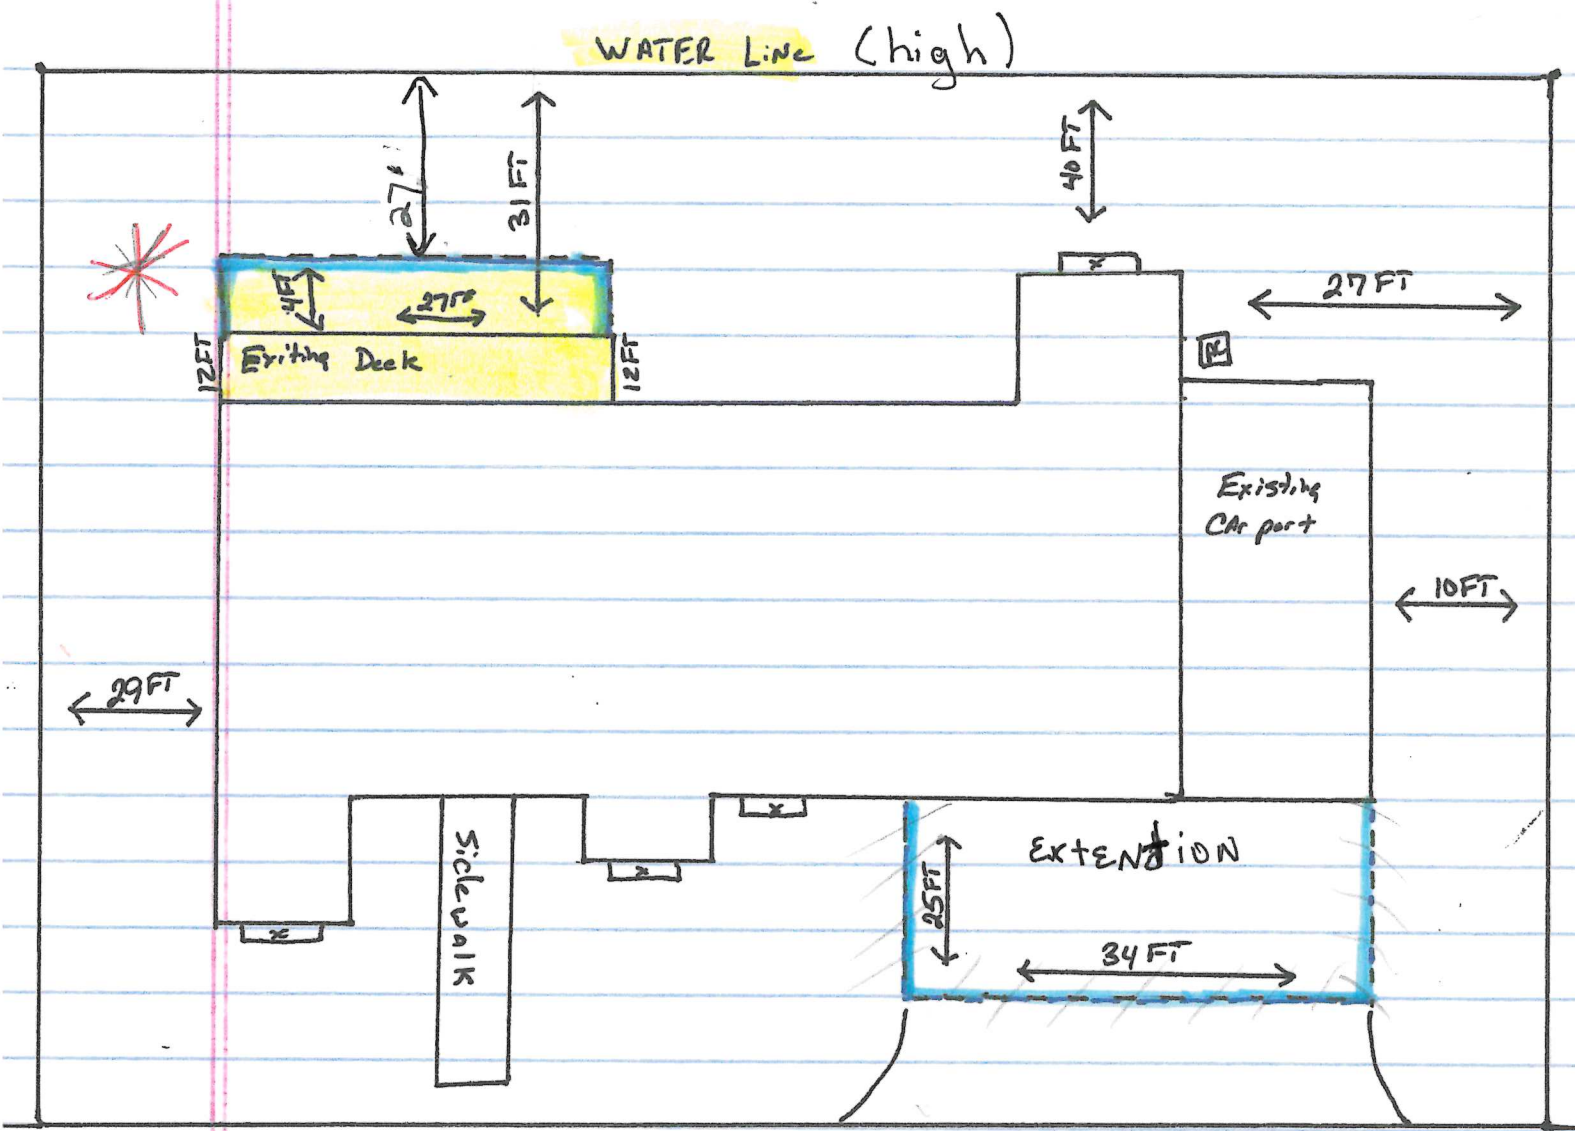 WATER LiNe (high)
27'
31 FT
40 FT
27 FT
4FT
27FT
12 FT
Exiting Deck
12 FT
R
Existing
CAr port
10FT
29 FT
x
x
x
x
Sidewalk
ExtENtiON
25FT
34 FT